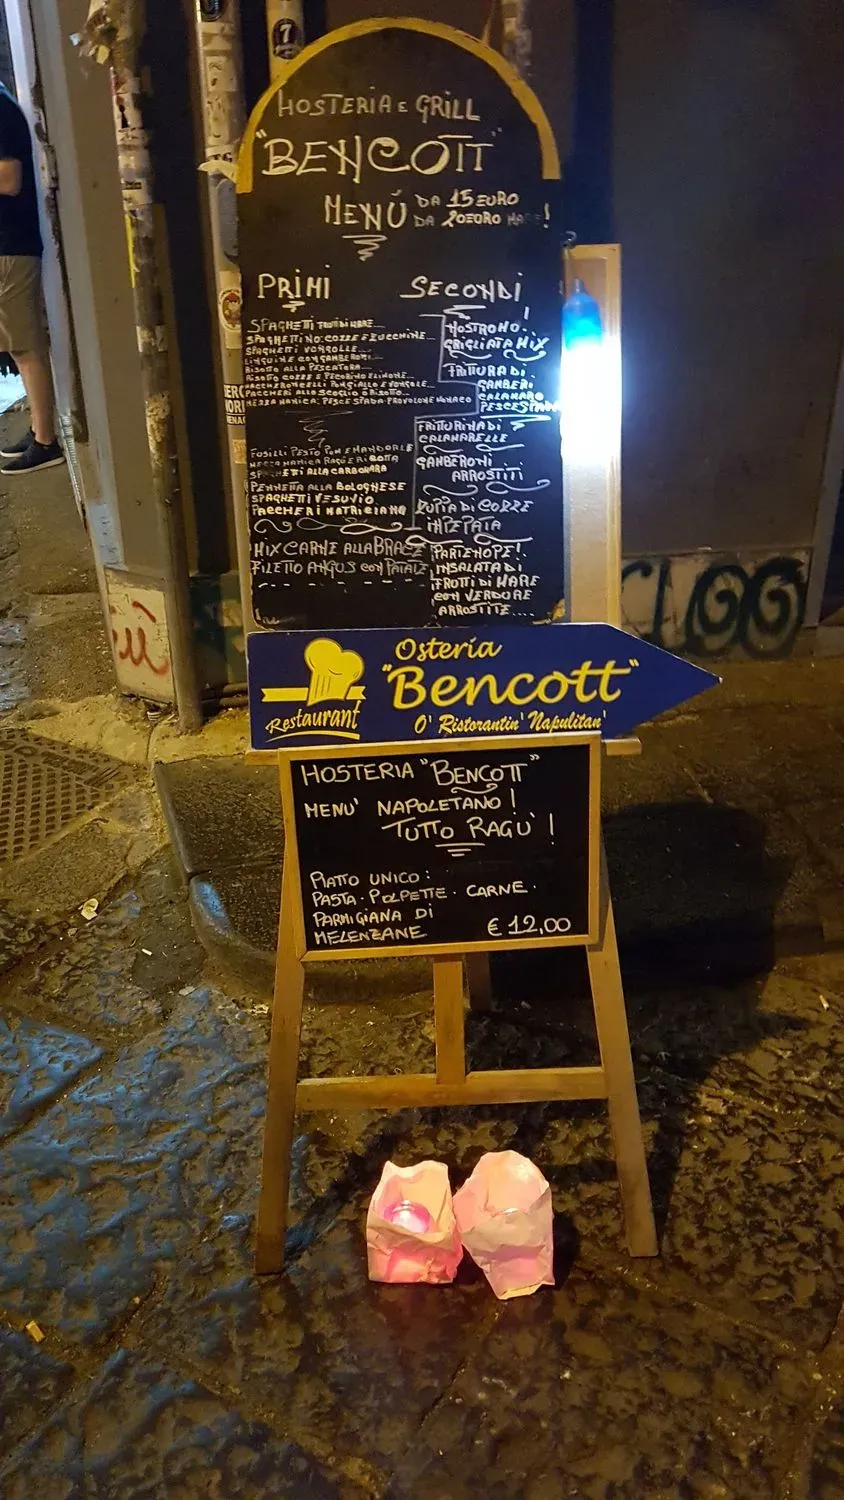 7
HOSTERIA E GRILL
"BENCOTT"
MENÚ DA 15 EURO
DA 20 EURO MARE!
PRIMI
SPAGHETTI FRUTTI DI MARE...
SPAGHETTINO: COZZE E ZUCCHINE...
SPAGHETTI VONGOLE...
LINGUINE CON GAMBERONI...
RISOTTO ALLA PESCATORA...
RISOTTO COZZE E PECORINO E LIMONE...
E VONGOLE...
PACCHERI ALLO SCOGLIO O RISOTTO...
MEZZA MANICA: PESCE SPADA: PROVOLONE MONACO
FUSILLI PESTO POM E MANDORLE
MEZZA MANICA RAGÚ E RICOTTA
SPAGHETTI ALLA CARBONARA
PENNETTA ALLA BOLOGNESE
SPAGHETTI VESUVIO
PACCHERI MATRICIANO
MIX CARNE ALLA BRACE
FILETTO ANGUS CON PATATE
SECONDI
NOSTROMO!
GRIGLIATA MIX
FRITTURA DI
GAMBERI
CALAMARO
PESCE SPADA
FRITTURINA DI
CALAMARELLE
GAMBERONI
ARROSTITI
ZUPPA DI COZZE
IMPEPATA
PARTENOPE!
INSALATA DI
FRUTTI DI MARE
CON VERDURE
ARROSTITE....
Osteria
"Bencott"
Restaurant
O' Ristorantin' Napulitan'
HOSTERIA "BENCOTT"
MENU' NAPOLETANO!
TUTTO RAGU'!
PIATTO UNICO:
PASTA · POLPETTE · CARNE ·
PARMIGIANA DI
MELENZANE € 12,00